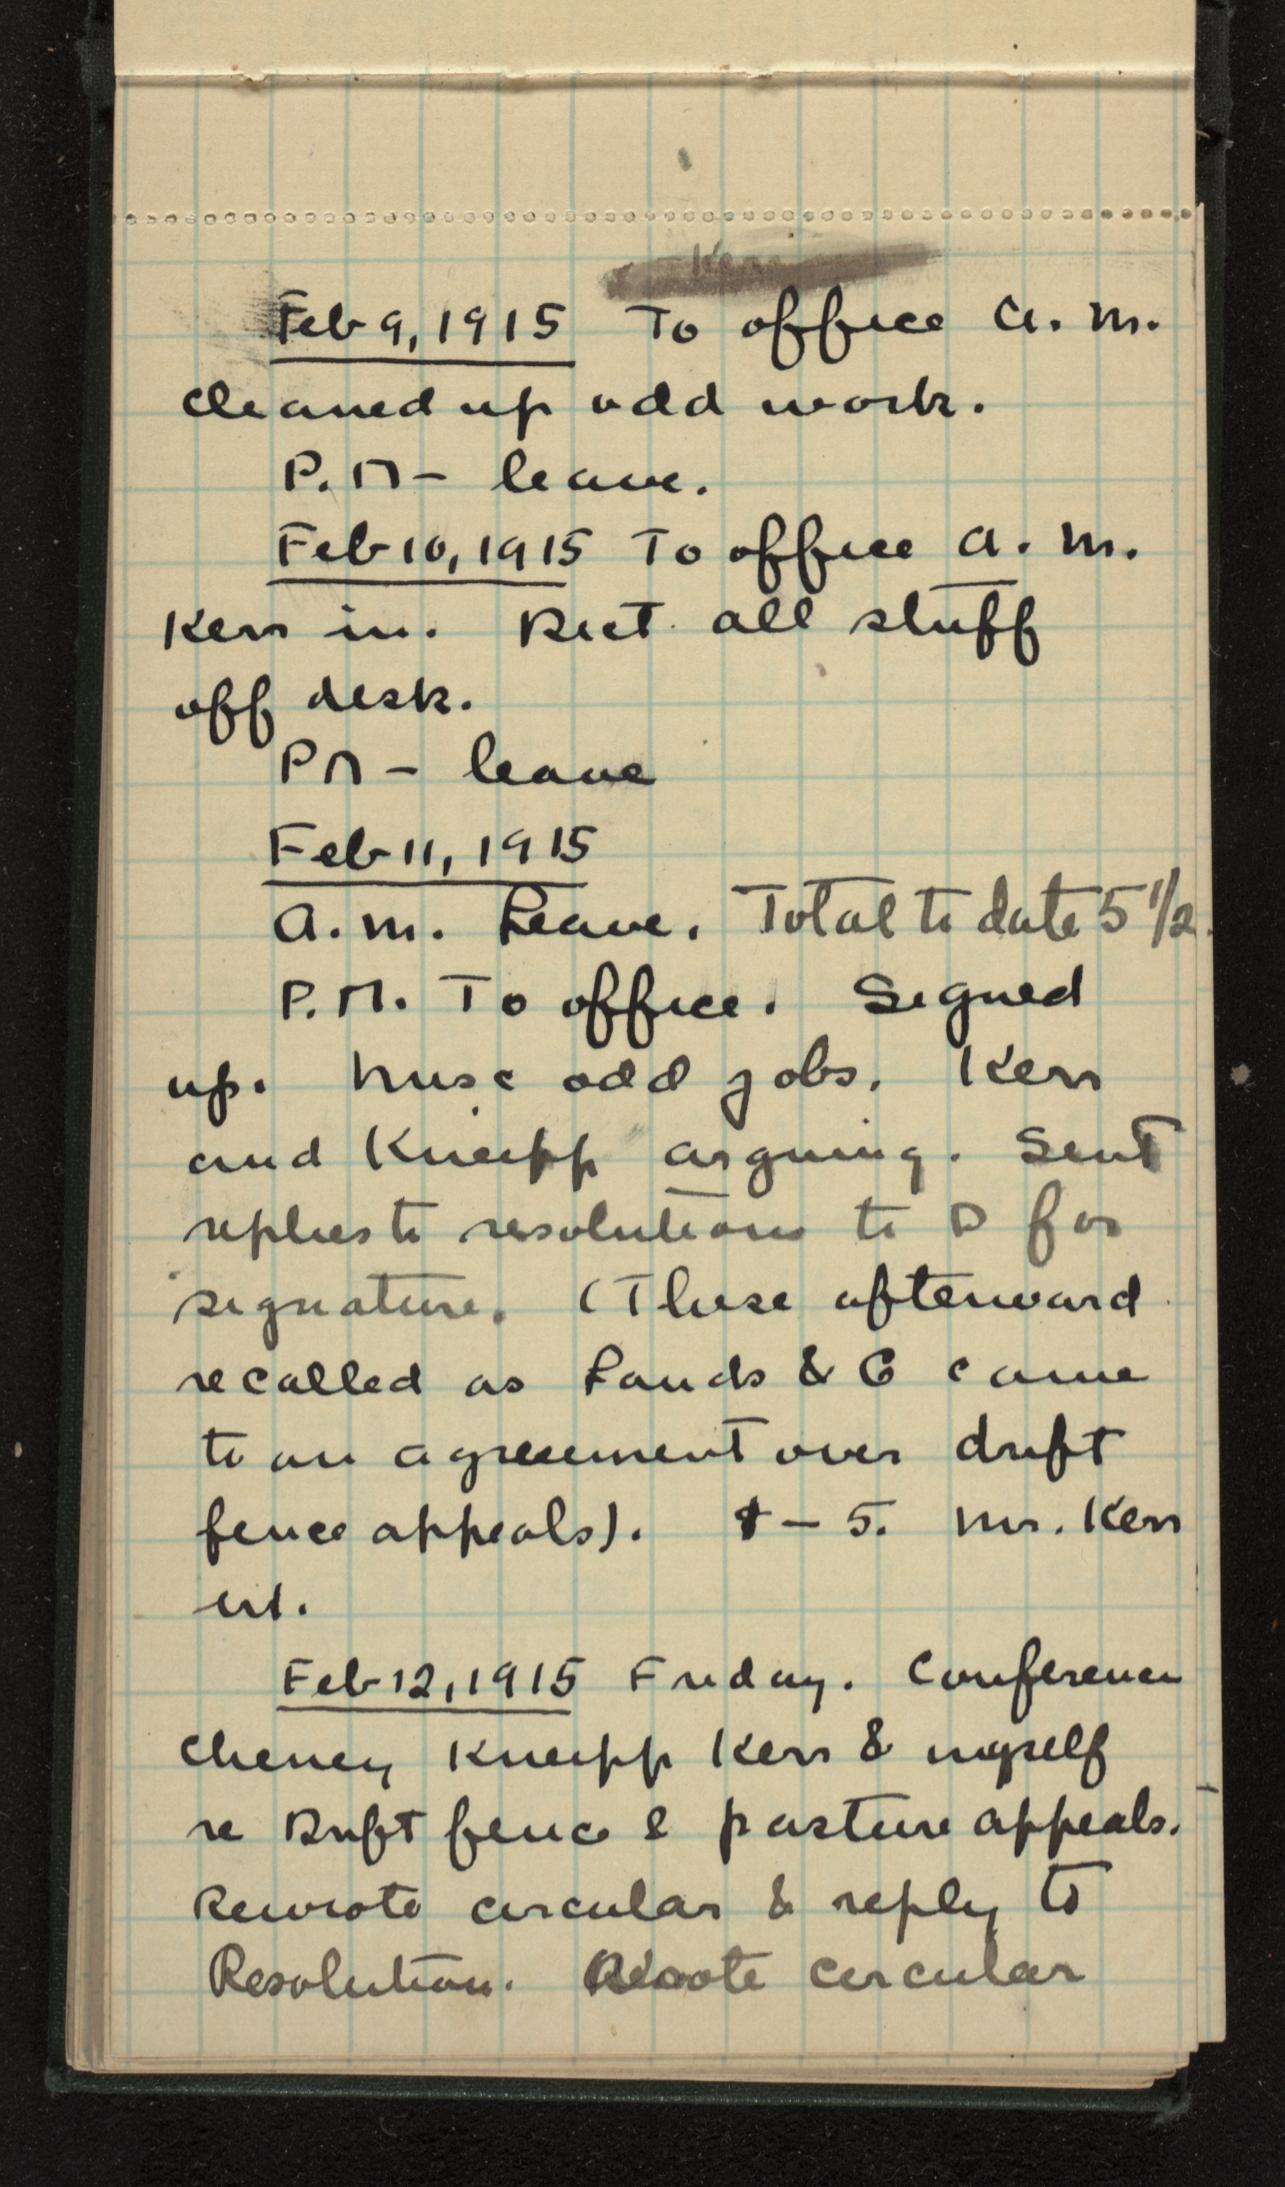 Kerr
Feb 9, 1915 To office a.m.
cleaned up odd work.
P.M - leave.
Feb 10, 1915 To office a.m.
Kerr in. all stuff
off desk.
PM - leave
Feb 11, 1915
a.m. Leave. Total to date 5 1/2.
P.M. To office. Signed
up. Misc odd jobs. Kerr
and Kneipp arguing. Sent
replies to resolutions to D for
signature. (These afterward
recalled as Lands & G came
to an agreement over drift
fence appeals). - 5. Mr. Kerr
in.
Feb 12, 1915 Friday. Conference
Cheney Kneipp Kerr & myself
re Drift fence & pasture appeals.
Rewrote circular & reply to
Resolution. circular